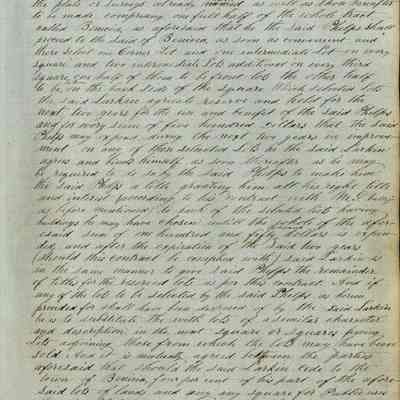 the plats or surveys already named as well as those hereafter
to be made comprising one full half of the whole tract
called Benicia, as aforesaid that he the said Phelps shall
proceed to the land of Benicia as soon as convenient and
there select one Corner Lot and one intermediate Lot on every
square and two intermediate Lots additional on every third
square, one half of them to be front lots the other half
to be on the back side of the square Which selected lots
the said Larkin agrees to reserve and hold for the
next two years for the use and benefit of the said Phelps
and for every sum of five hundred dollars that the said
Phelps may expend during the next two years in improve-
ment on any of these selected Lots he the said Larkin
agrees and binds himself as soon thereafter as he may
be required to do so by the said Phelps to make him
the said Phelps a title granting him all his right title
and interest according to his contract with M. G.
as before mentioned to each of the selected lots having
buildings he may have chosen until the of the afore-
said sum of one hundred and fifty dollars is expen-
ded, and after the expiration of the said two years
(should this contract be complied with) said Larkin is
in the same manner to give said Phelps the remainder
of titles for the reserved lots as per this contract. And if
any of the lots to be selected by the said Phelps as herein
provided for shall have been disposed of by the said Larkin
he is to substitute the next lots of similar character
and description in the next square or squares giving
Lots adjoining those from which the lots may have been
sold And it is mutually agreed between the parties
aforesaid that should the said Larkin cede to the
town of Benicia, four per cent of his part of the afore-
said lots of lands and any any square for Public uses